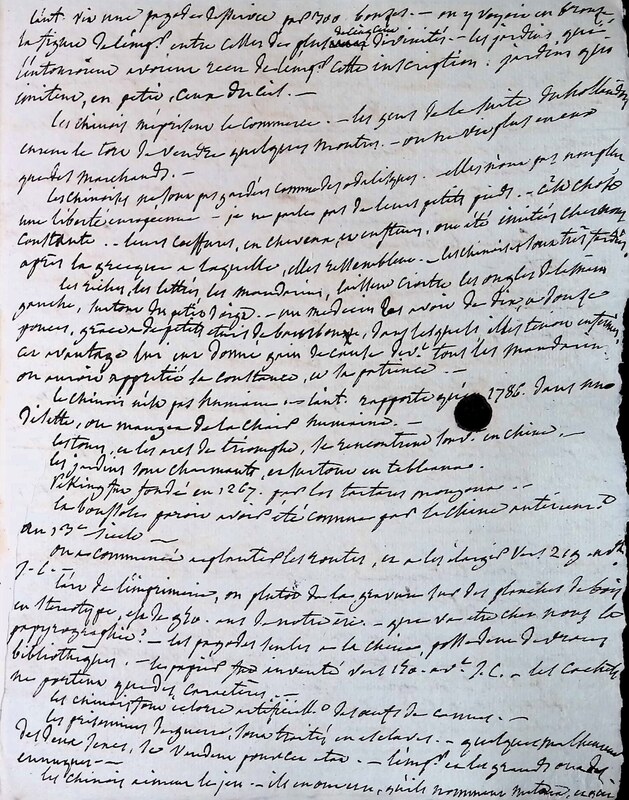 l'aut. vit une pagode desservie par 700 bonzes. — on y voyoit en bronze
la figure de l'emp.r entre celles des plus divinités — les jardins qui
l'entouroient avoient reçu de l'emp.r cette inscription. jardins qui
imitent, en petit, ceux du ciel. —
Les chinois méprisent le commerce. — les gens de la suite du hollandois
eurent le tort de vendre quelques montres. — on ne vit plus en eux
que des marchands. —
Les chinoises ne sont pas gardées comme des odalisques. elles n'ont pas non plus
une liberté européenne — je ne parle pas de leurs petits pieds. — c'est chose
constante. — leurs coëffures, en cheveux, et en fleurs, ont été imitées chez nous
après la grecque à laquelle, elles ressemblent. — les chinoises sont très fardées.
Les riches, les lettrés, les mandarins, laissent croître les ongles de la main
gauche, surtout du petit doigt. — un médecin les avoit de dix, à douze
pouces, grâce à de petits étuis de bambou, dans lesquels il les tenoit enfermés.
cet avantage lui eut donné gain de cause dev.t tous les mandarins.
on auroit apprécié sa constance, et sa patience. —
Le chinois n'est pas humain. — l'aut. rapporte qu'en 1786. dans une
disette, on mangea de la chair humaine. —
Les tours, et les arcs de triomphe, se rencontrent souv.t en chine. —
Les jardins sont charmants, et surtout en tableaux.
Péking fut fondé en 1267. par les tartares mongoux. —
La boussole paroit avoir été connue par la chine antérieurem.t
au 13.e siècle —
On a commencé à planter les routes, et à les élargir vers 219 av.t
J.-C. —
L'art de l'imprimerie, ou plutôt de la gravure sur des planches de bois
en stéréotype, est de 930. ans de notre ère. — que va être chez nous la
papyrographie? — les pagodes seules à la chine, possèdent de vraies
bibliothèques. — le papier fut inventé vers 170. av.t J.C. — les cachets
ne portent que des caractères. —
Les chinois font éclore artificiellt des oeufs de cannes. —
Les prisonniers de guerre, sont traités en esclaves. — quelques malheureux
des deux sexes, se vendent pour cet état. — l'emp.r et les grands ont des
eunuques. —
Les chinois aiment le jeu. — ils en ont un, qu'ils nomment